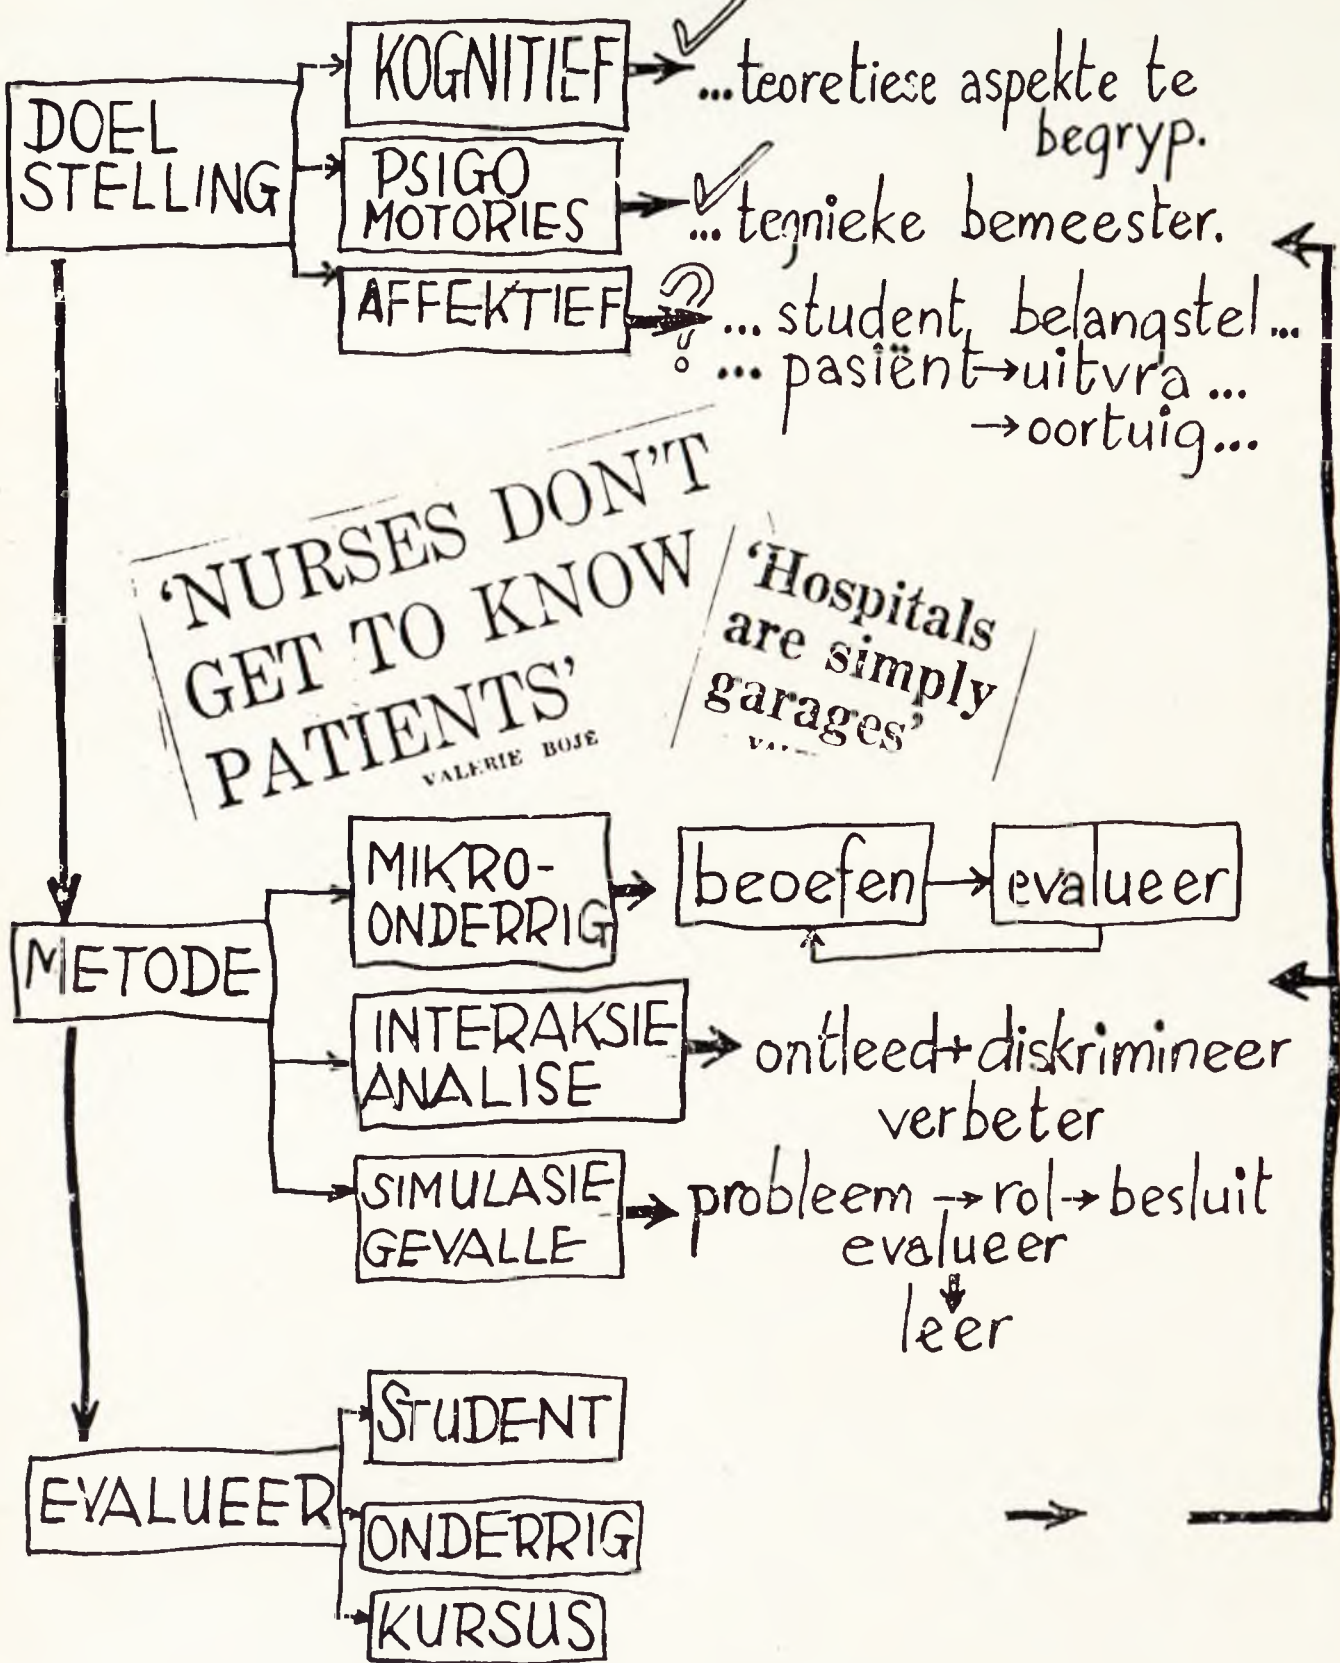 DOEL
STELLING
KOGNITIEF
...teoretiese aspekte te
begryp.
PSIGO
MOTORIES
... tegnieke bemeester.
AFFEKTIEF
?
... student, belangstel...
... pasiënt→uitvra...
→oortuig...
'NURSES DON'T
GET TO KNOW
PATIENTS'
VALERIE BOJE
'Hospitals
are simply
garages'
METODE
MIKRO-
ONDERRIG
beoefen
evalueer
INTERAKSIE
ANALISE
ontleed+diskrimineer
verbeter
SIMULASIE
GEVALLE
probleem →rol→besluit
evalueer
leer
EVALUEER
STUDENT
ONDERRIG
KURSUS